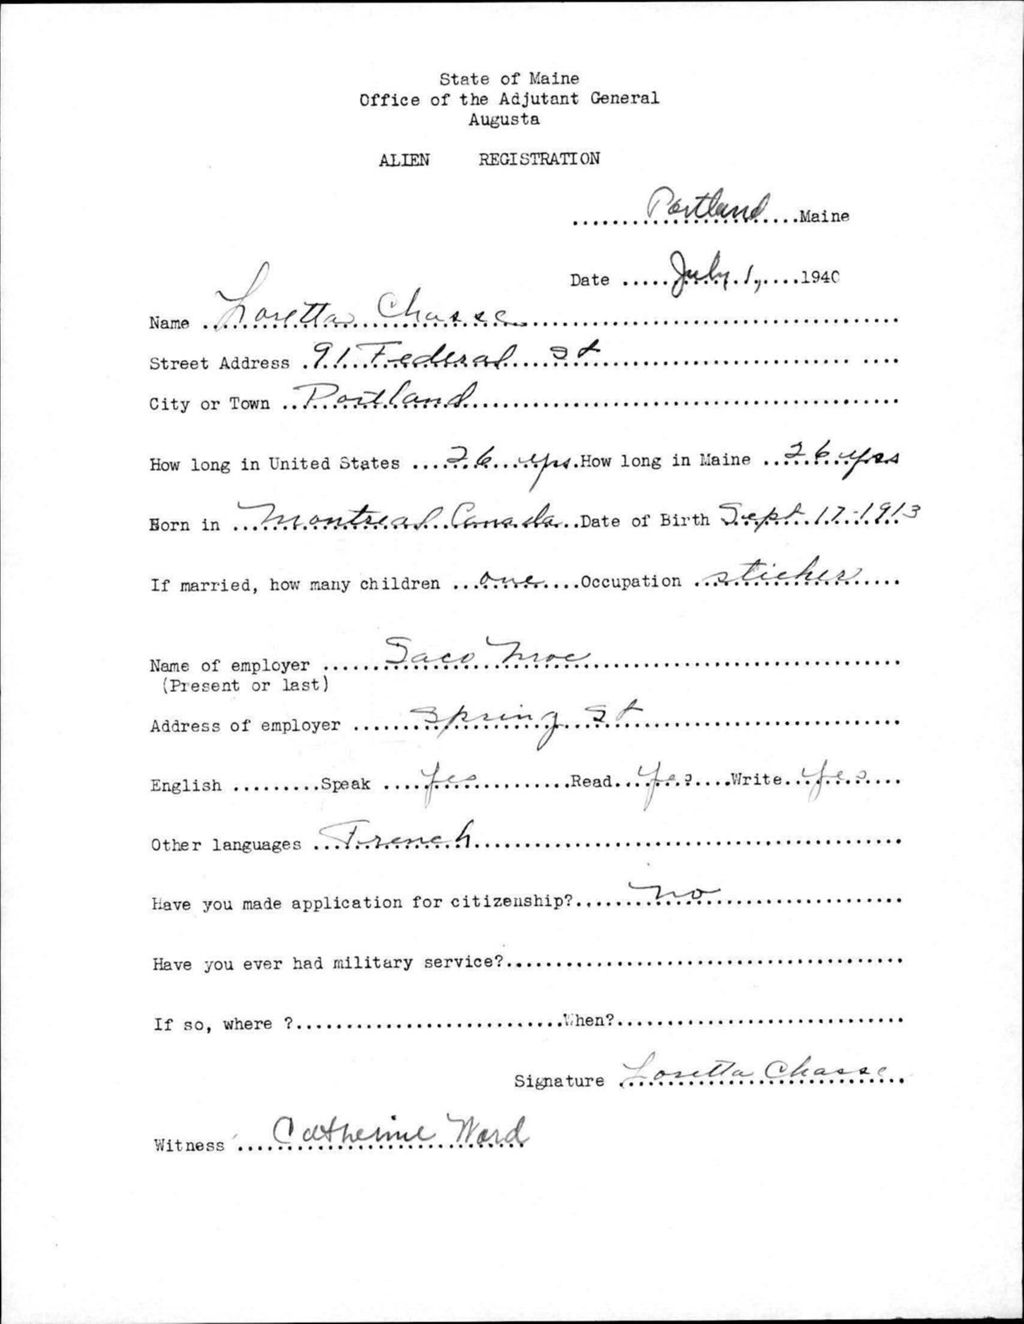 State of Maine
Office of the Adjutant General
Augusta
ALIEN REGISTRATION
Portland Maine
Date July 1, 1940
Name Loretta Chasse
Street Address 91 Federal St
City or Town Portland
How long in United States 26 yrs. How long in Maine 26 yrs
Born in Montreal Canada Date of Birth Sept 17-1913
If married, how many children one Occupation sticher
Name of employer Saco Moc
(Present or last)
Address of employer Spring St
English Speak yes Read yes Write yes
Other languages French
Have you made application for citizenship? no
Have you ever had military service?
If so, where ? When?
Signature Loretta Chasse
Witness Catherine Ward